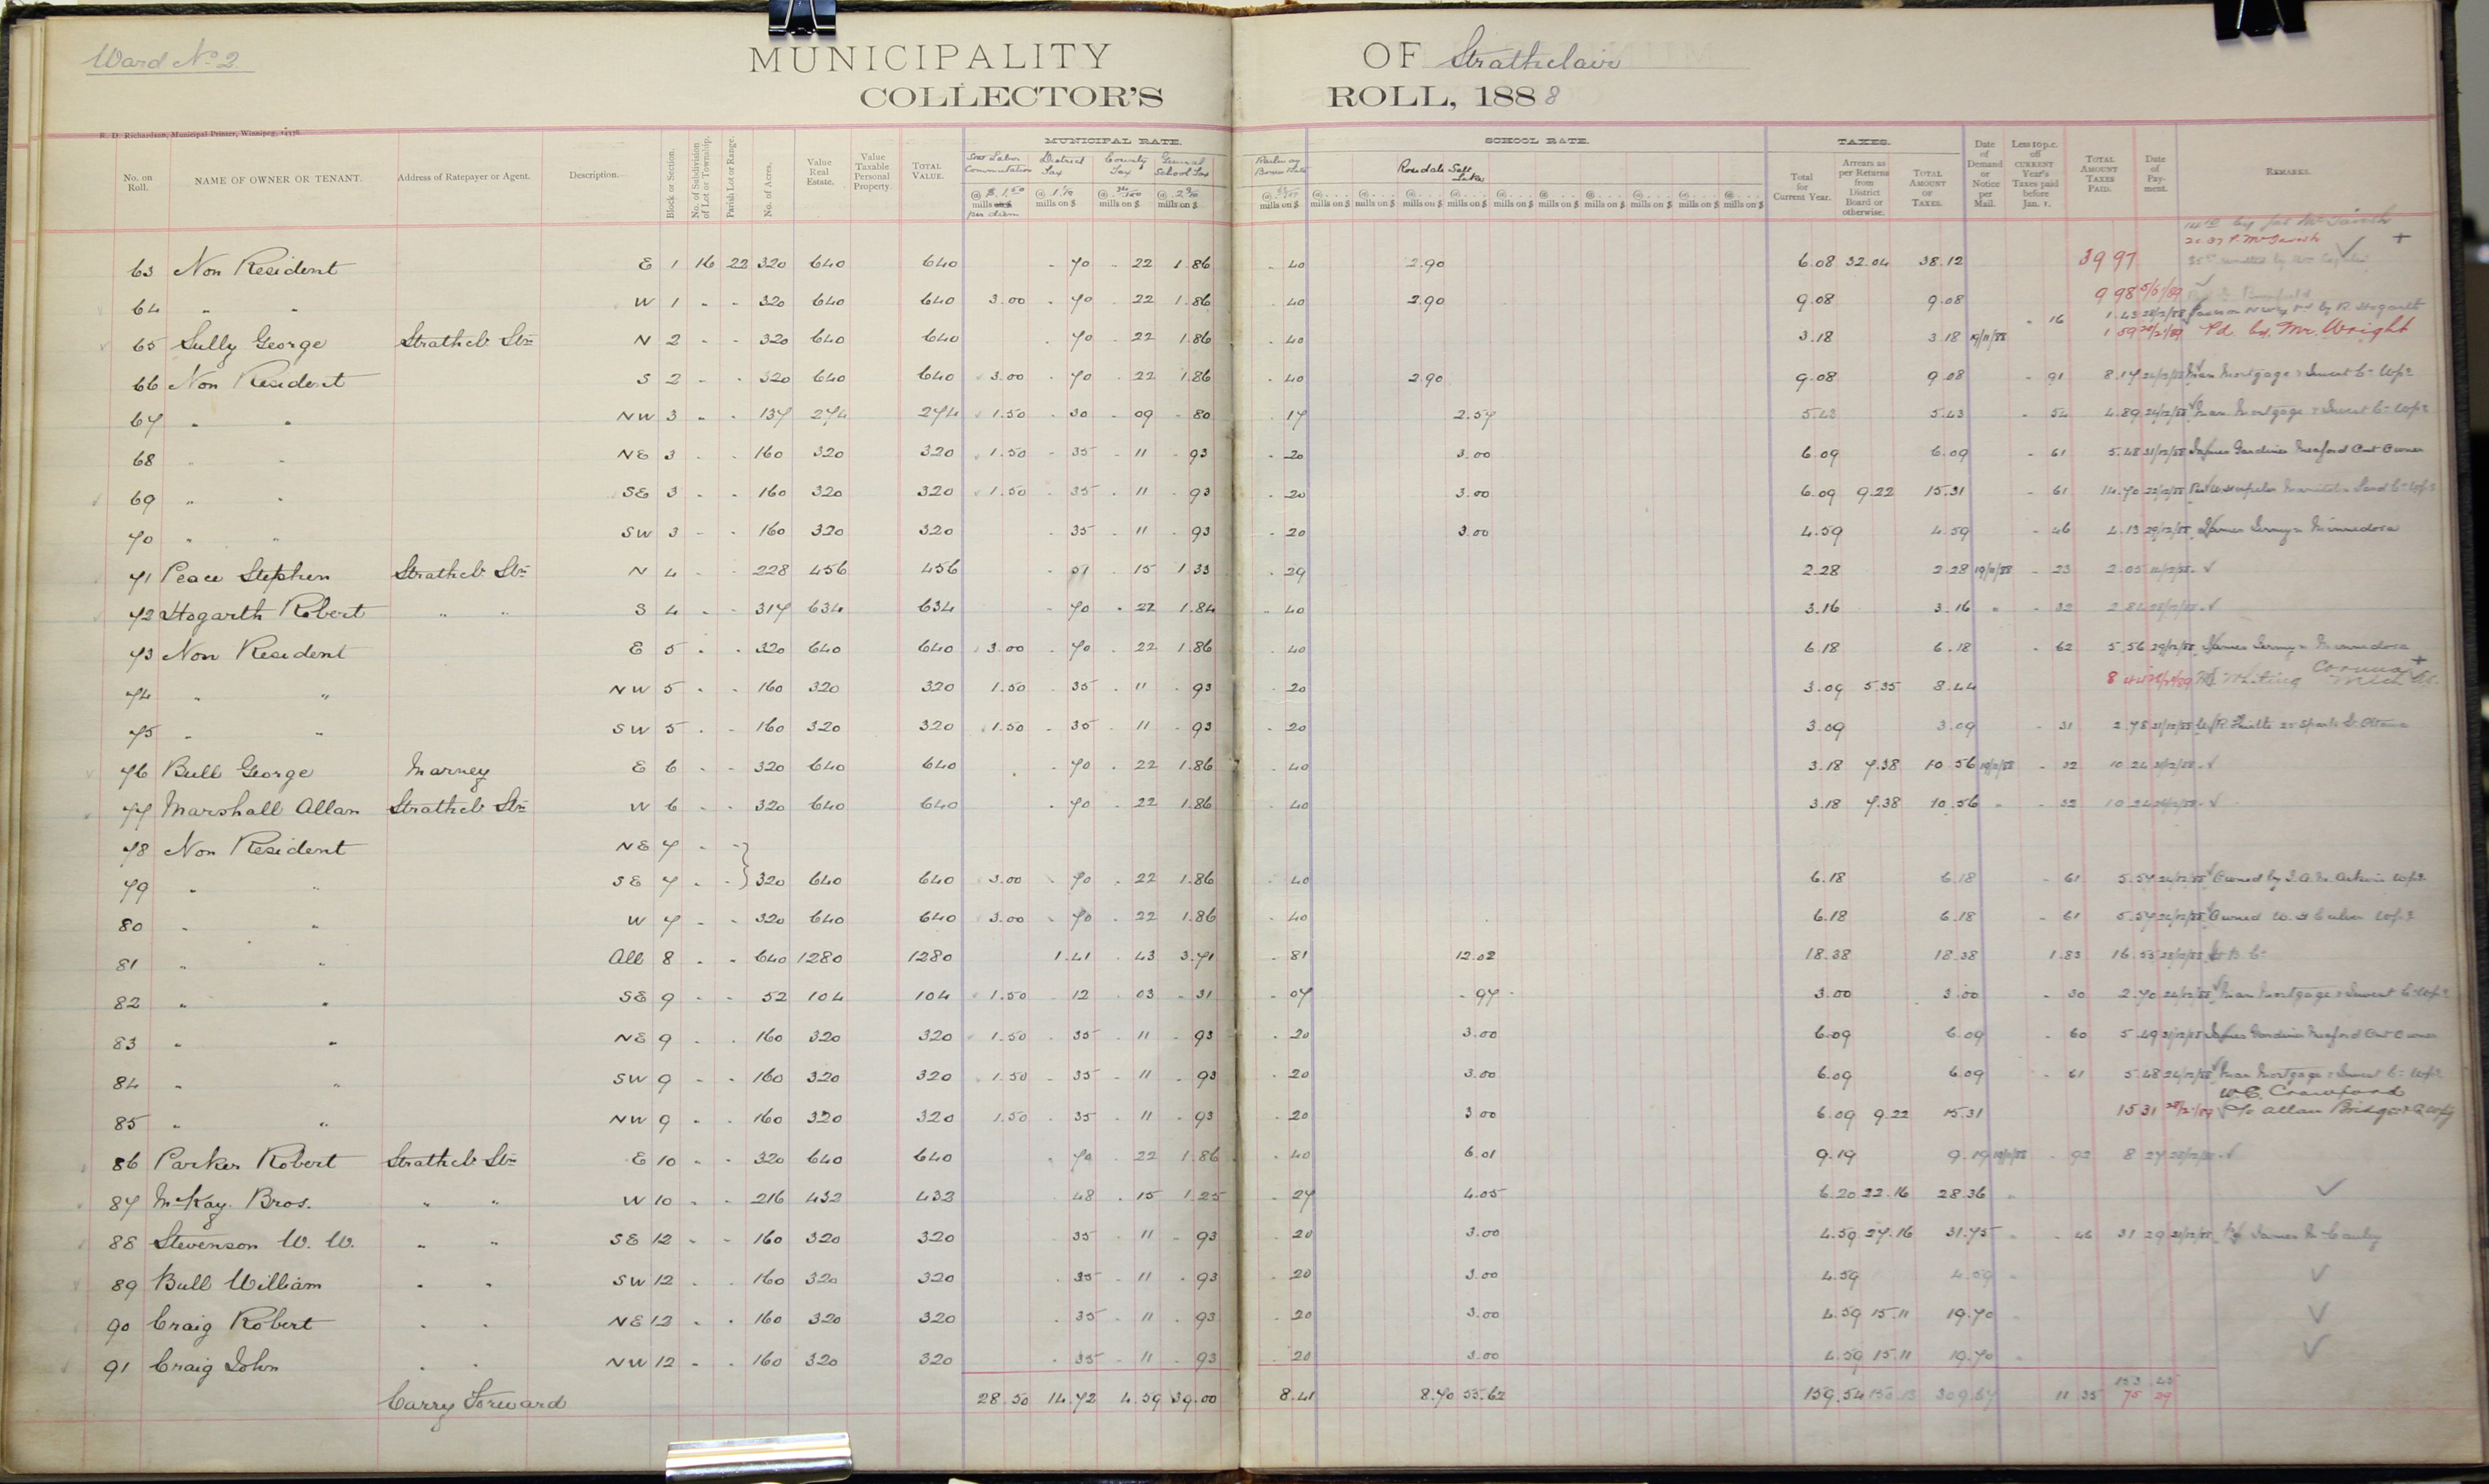 Ward No 2
MUNICIPALITY OF Strathclair
COLLECTOR'S ROLL, 1888
R. D. Richardson, Municipal Printer, Winnipeg,
MUNICIPAL RATE. SCHOOL RATE. TAXES.
No. on Roll. NAME OF OWNER OR TENANT. Address of Ratepayer or Agent. Description. Block or Section. No. of Subdivision of Lot or Township. Parish Lot or Range. No. of Acres. Value Real Estate. Value Taxable Personal Property. TOTAL VALUE. Stat Labor Commutation @ $ 1.50 mills on $ per diem District Tax @ 1 1/10 mills on $ County Tax @ mills on $ General School Tax @ 2 9/10 mills on $ Railway Bonus Rate @ mills on $ Rosedale Salt Lake Total for Current Year. Arrears as per Returns from District Board or otherwise. TOTAL AMOUNT OF TAXES. Date of Demand or Notice per Mail. Less 10 p.c. off CURRENT Year's Taxes paid before Jan. 1. TOTAL AMOUNT TAXES PAID. Date of Payment. REMARKS.
63 Non Resident E 1 16 22 320 640 640 70 22 1.86 40 2.90 6.08 32.04 38.12 39 97
64 " " W 1 " " 320 640 640 3.00 70 22 1.86 40 2.90 9.08 9.08 9 98
65 Sully George Strathcl. Stn N 2 " " 320 640 640 70 22 1.86 40 3.18 3.18 19/11/88 16 1.43 1 59 Pd by Mr. Wright
66 Non Resident S 2 " " 320 640 640 3.00 70 22 1.86 40 2.90 9.08 9.08 91 8.17 24/12/88 Man Mortgage & Invest Co Wpg
67 " " NW 3 " " 137 274 274 1.50 30 09 80 17 2.57 5.43 5.43 54 4.89 24/12/88 Man Mortgage & Invest Co Wpg
68 " " NE 3 " " 160 320 320 1.50 35 11 93 20 3.00 6.09 6.09 61 5.48 31/12/88 James Gardiner Meaford Ont Owner
69 " " SE 3 " " 160 320 320 1.50 35 11 93 20 3.00 6.09 9.22 15.31 61 14.70
70 " " SW 3 " " 160 320 320 35 11 93 20 3.00 4.59 4.59 46 4.13 29/12/88 James Jermyn Minnedosa
71 Peace Stephen Strathcl. Stn N 4 " " 228 456 456 51 15 1.33 29 2.28 2.28 19/11/88 23 2.05
72 Hogarth Robert " " S 4 " " 317 634 634 70 22 1.84 40 3.16 3.16 " 32 2.84
73 Non Resident E 5 " " 320 640 640 3.00 70 22 1.86 40 6.18 6.18 62 5.56 29/12/88 James Jermyn Minnedosa
74 " " NW 5 " " 160 320 320 1.50 35 11 93 20 3.09 5.35 8.44 8 44 Whiting Corunna Mich
75 " " SW 5 " " 160 320 320 1.50 35 11 93 20 3.09 3.09 31 2.78 31/12/88
76 Bull George Marney E 6 " " 320 640 640 70 22 1.86 40 3.18 7.38 10 56 19/11/88 32 10.24
77 Marshall Allan Strathcl. Stn W 6 " " 320 640 640 70 22 1.86 40 3.18 7.38 10.56 " 32 10.24
78 Non Resident NE 7 " "
79 " " SE 7 " " 320 640 640 3.00 70 22 1.86 40 6.18 6.18 61 5.57
80 " " W 7 " " 320 640 640 3.00 70 22 1.86 40 6.18 6.18 61 5.57 Owned W. H Culver Wpg
81 " " All 8 " " 640 1280 1280 1.41 43 3.71 81 12.02 18.38 18.38 1.83 16.55
82 " " SE 9 " " 52 104 104 1.50 12 03 31 07 97 3.00 3.00 30 2.70 24/12/88 Man Mortgage & Invest Co Wpg
83 " " NE 9 " " 160 320 320 1.50 35 11 93 20 3.00 6.09 6.09 60 5.49 31/12/88 James Gardiner Meaford Ont Owner
84 " " SW 9 " " 160 320 320 1.50 35 11 93 20 3.00 6.09 6.09 61 5.48 24/12/88 Man Mortgage & Invest Co Wpg
85 " " NW 9 " " 160 320 320 1.50 35 11 93 20 3.00 6.09 9.22 15.31 15 31 W.C. Crawford c/o Allan Bridges & Co Wpg
86 Parker Robert Strathcl. Stn E 10 " " 320 640 640 70 22 1.86 40 6.01 9.19 9.19 19/11/88 92 8 27
87 McKay Bros. " " W 10 " " 216 432 432 48 15 1.25 27 4.05 6.20 22.16 28.36 "
88 Stevenson W. W. " " SE 12 " " 160 320 320 35 11 93 20 3.00 4.59 27.16 31.75 " 46 31 29 James McCauley
89 Bull William " " SW 12 " " 160 320 320 35 11 93 20 3.00 4.59 4.59 "
90 Craig Robert " " NE 12 " " 160 320 320 35 11 93 20 3.00 4.59 15.11 19.70
91 Craig John " " NW 12 " " 160 320 320 35 11 93 20 3.00 4.59 15.11 19.70
Carry Forward 28.50 14.72 4.59 39.00 8.41 8.70 55.62 159.54 309.67 11 35 153 45
75 29